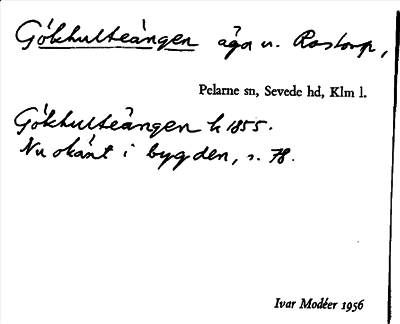 Gökhulteängen äga u. Rostorp,
Pelarne sn, Sevede hd, Klm l.
Gökhulteängen h 1855.
Nu okänt i bygden, s. 78.
Ivar Modéer 1956